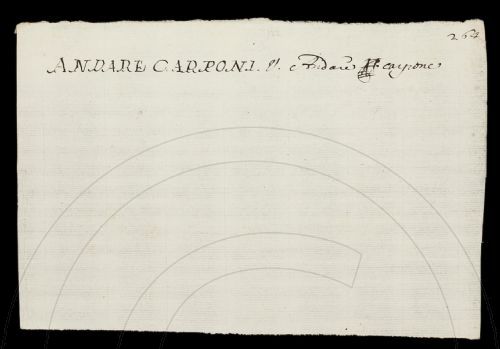 264
ANDARE CARPONI. Vl. e Andare carpone